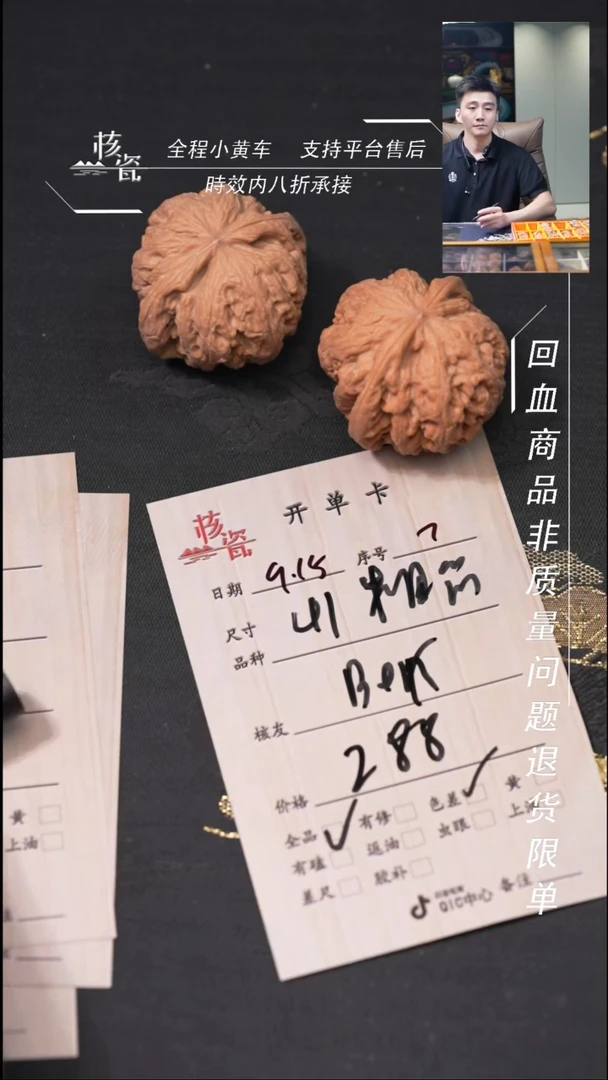 核瓷
全程小黄车 支持平台售后
時效内八折承接
回血商品非质量问题退货限单
核瓷
开单卡
日期 9.15 序号 7
尺寸 41
品种
核友
288
价格
全品 有修 色差 黄
有磕 返油 虫眼 上油
差尺 胶补
QIC中心 备注
黄
上油